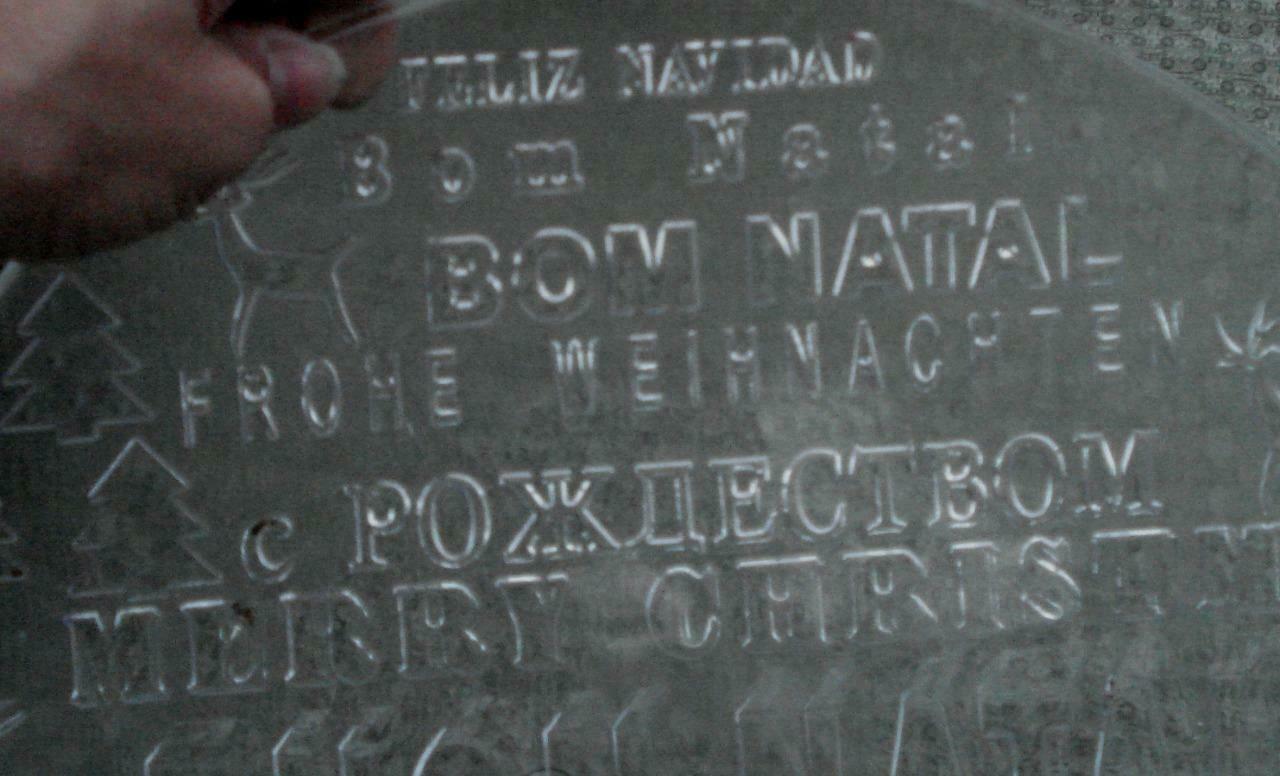 FELIZ NAVIDAD
Bom Natal
BOM NATAL
FROHE WEIHNACHTEN
с РОЖДЕСТВОМ
MERRY